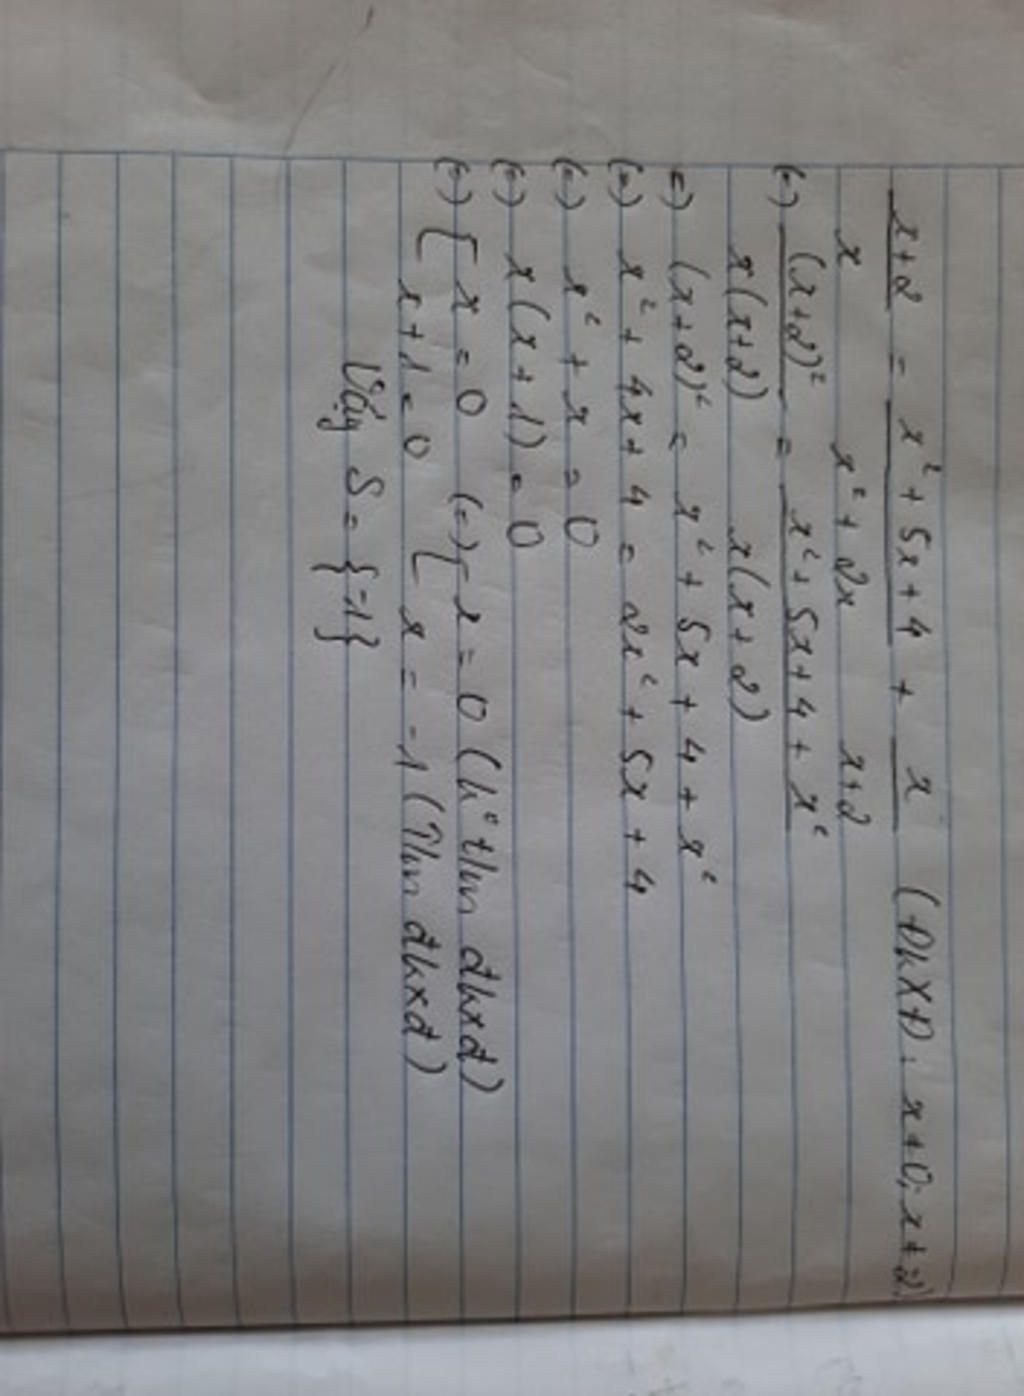 x+2 / x = x² + 5x + 4 / x² + 2x + x / x+2 (ĐKXĐ: x ≠ 0; x ≠ 2)
(=) (x+2)² / x(x+2) = x² + 5x + 4 + x² / x(x+2)
=) (x+2)² = x² + 5x + 4 + x²
(=) x² + 4x + 4 = 2x² + 5x + 4
(=) x² + x = 0
(=) x(x+1) = 0
(=) [ x = 0 (=) [ x = 0 (k° t/m đkxđ)
x+1 = 0 x = -1 (T/m đkxđ)
Vậy S = {-1}